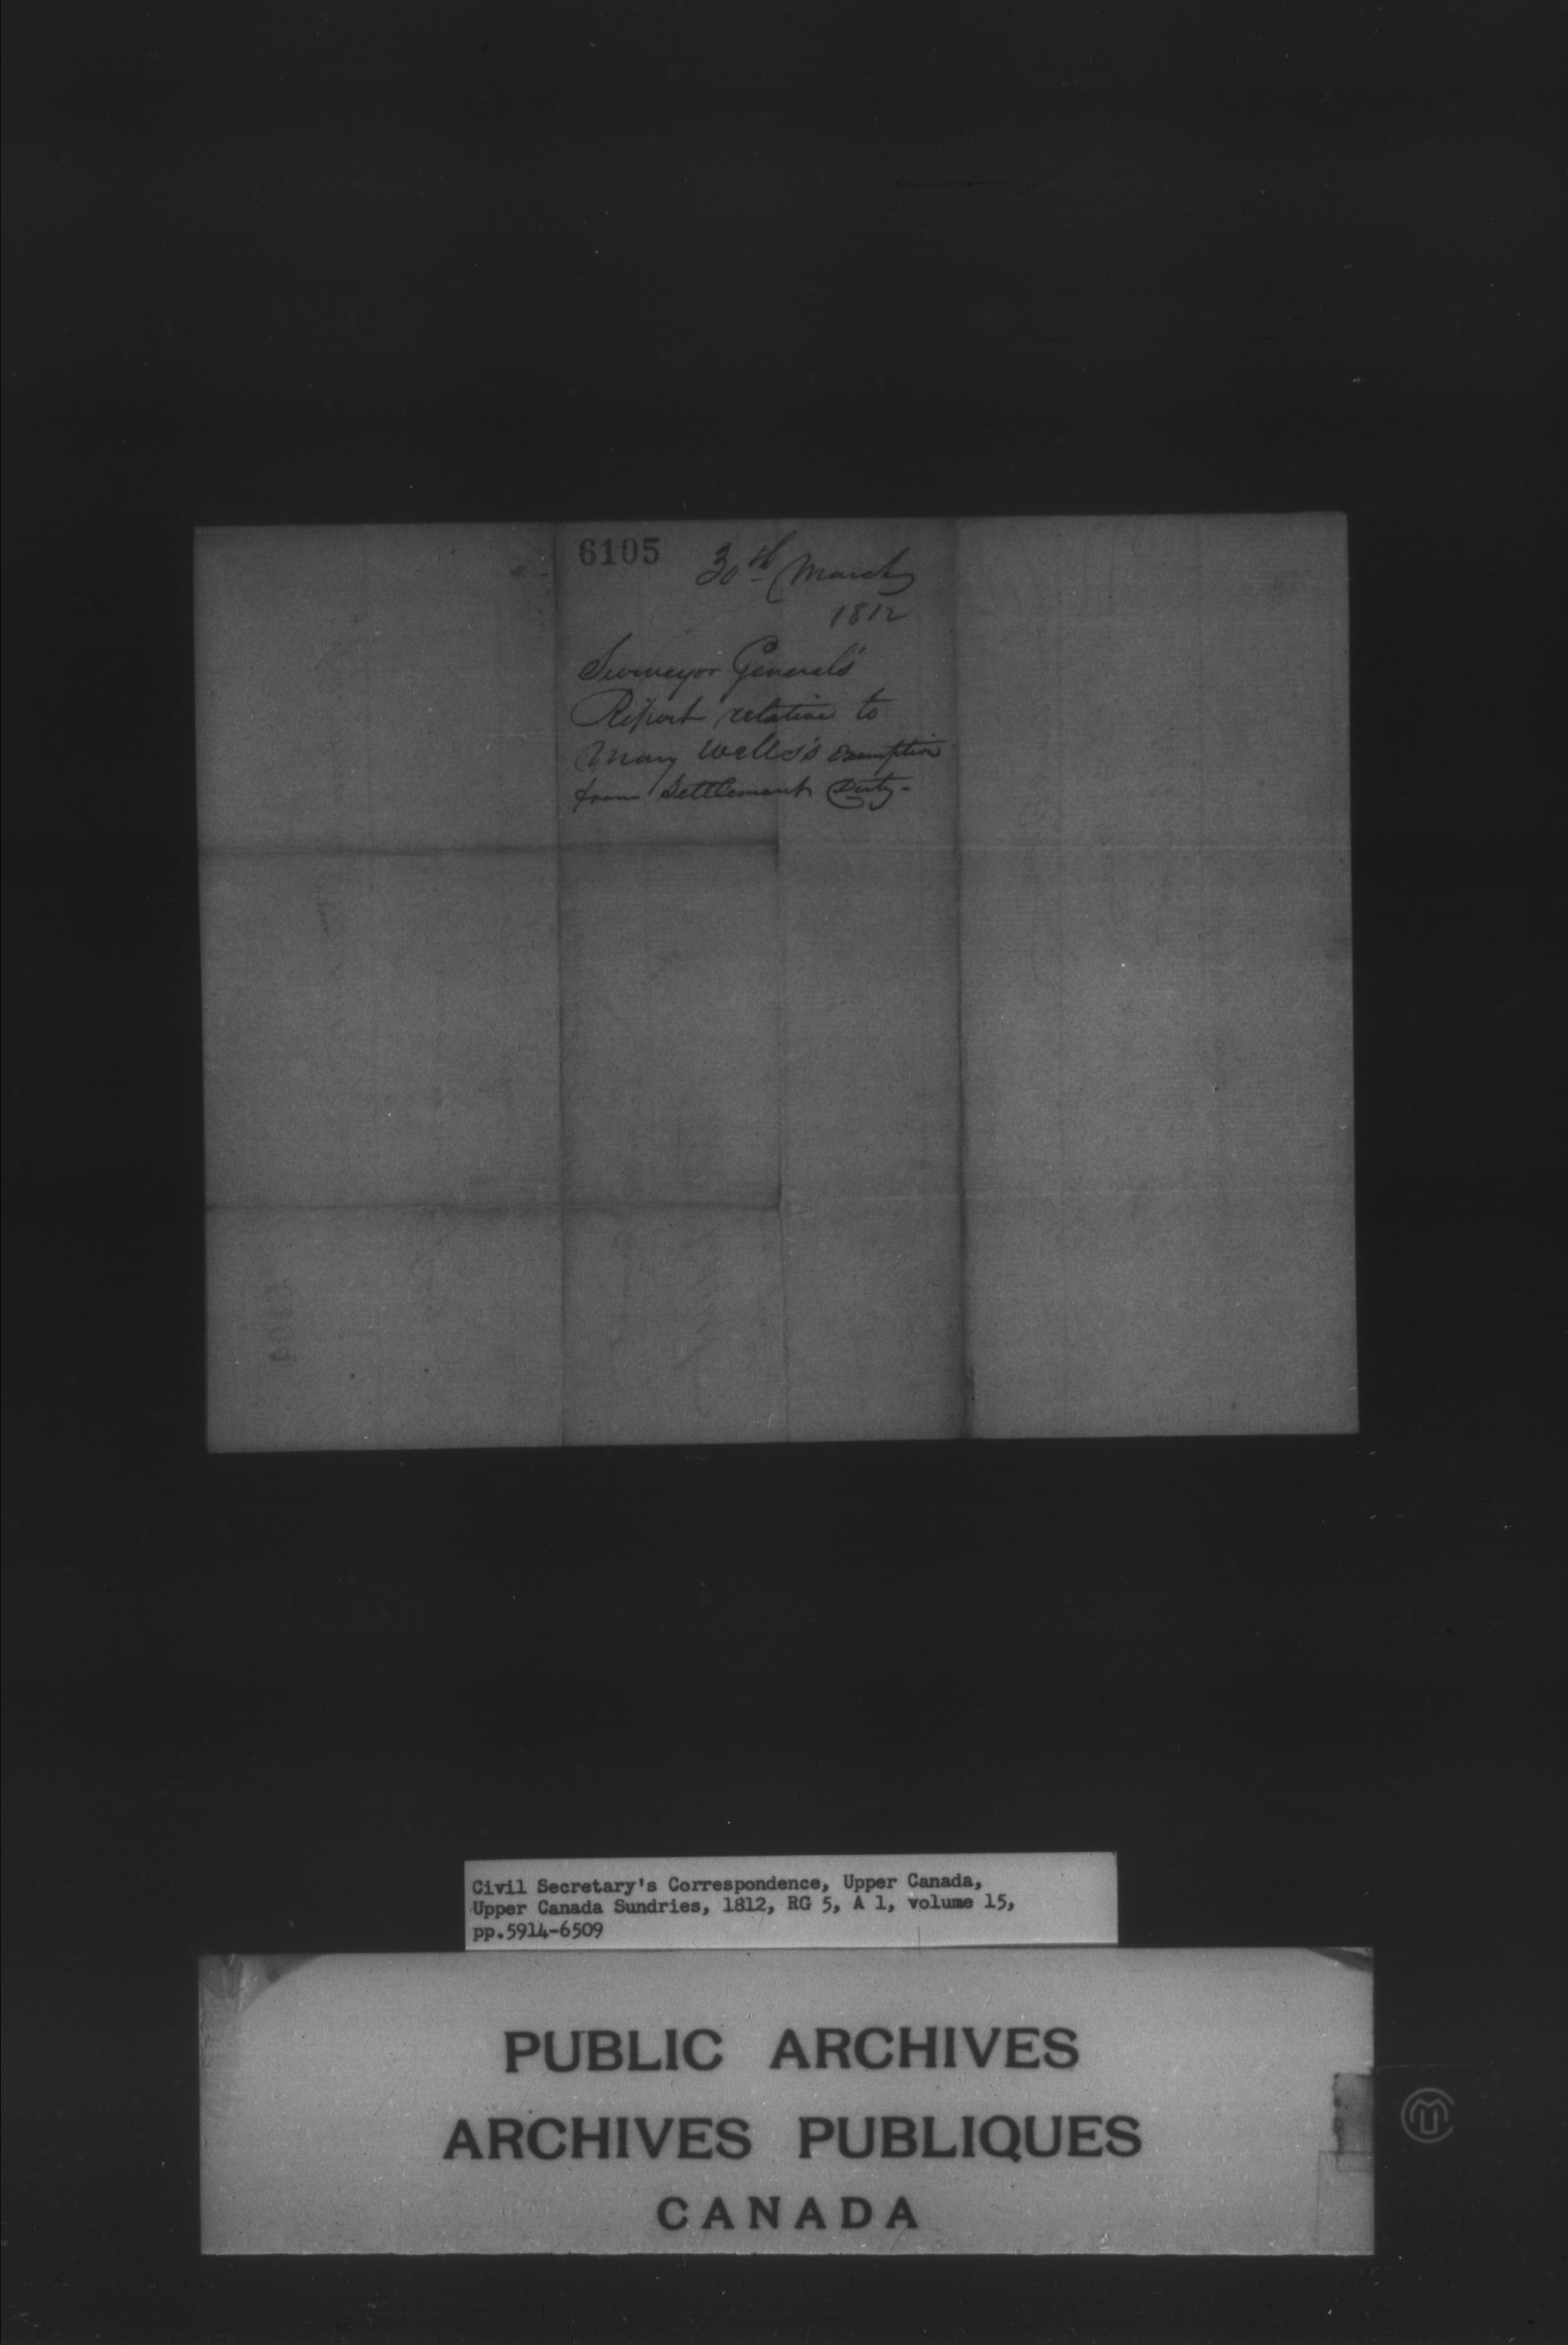 6105
30th March
1812
Surveyor General's
Report relative to
Mary Wells's exemption
from Settlement Duty-
Civil Secretary's Correspondence, Upper Canada,
Upper Canada Sundries, 1812, RG 5, A 1, volume 15,
pp.5914-6509
PUBLIC ARCHIVES
ARCHIVES PUBLIQUES
CANADA